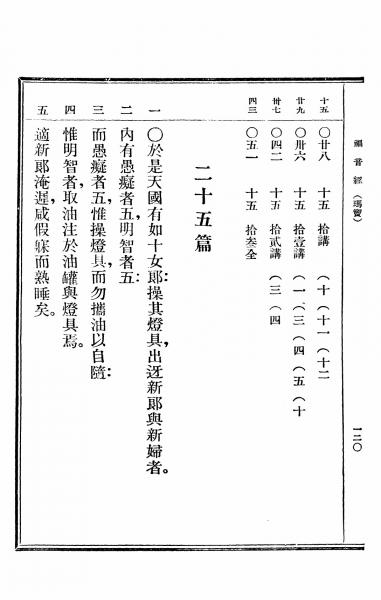 福音經（瑪竇）
一二〇
十五 〇廿八 十五 拾講 （十（十一（十二
廿九 〇卅六 十五 拾壹講 （一、（三（四（五（十
卅七 〇四二 十五 拾貳講 （三（四
四三 〇五一 十五 拾叁全
二十五篇
一 〇於是天國有如十女郎：操其燈具，出迓新郎與新婦者。
二 內有愚癡者五，明智者五：
三 而愚癡者五，惟操燈具，而勿攜油以自隨：
四 惟明智者，取油注於油罐與燈具焉。
五 適新郎淹遲，咸假寐而熟睡矣。